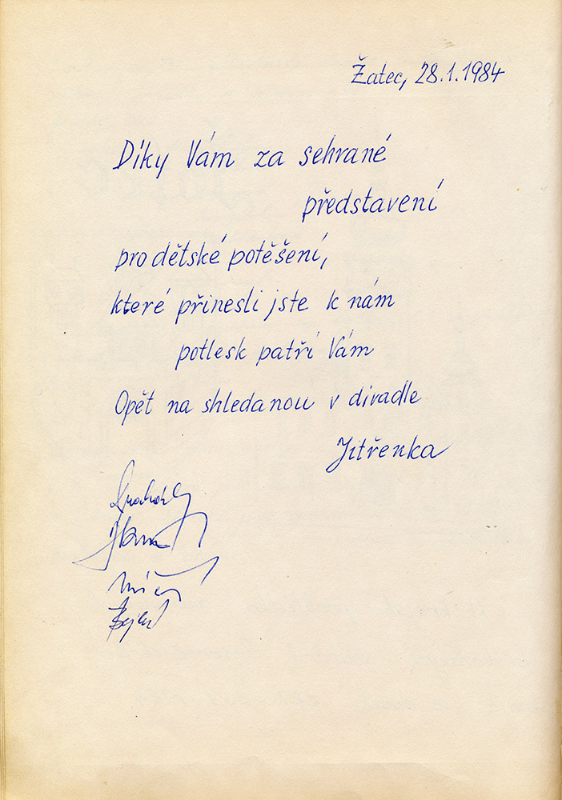 Žatec, 28.1.1984
Díky Vám za sehrané
představení
pro dětské potěšení,
které přinesli jste k nám
potlesk patří Vám
Opět na shledanou v divadle
Jitřenka